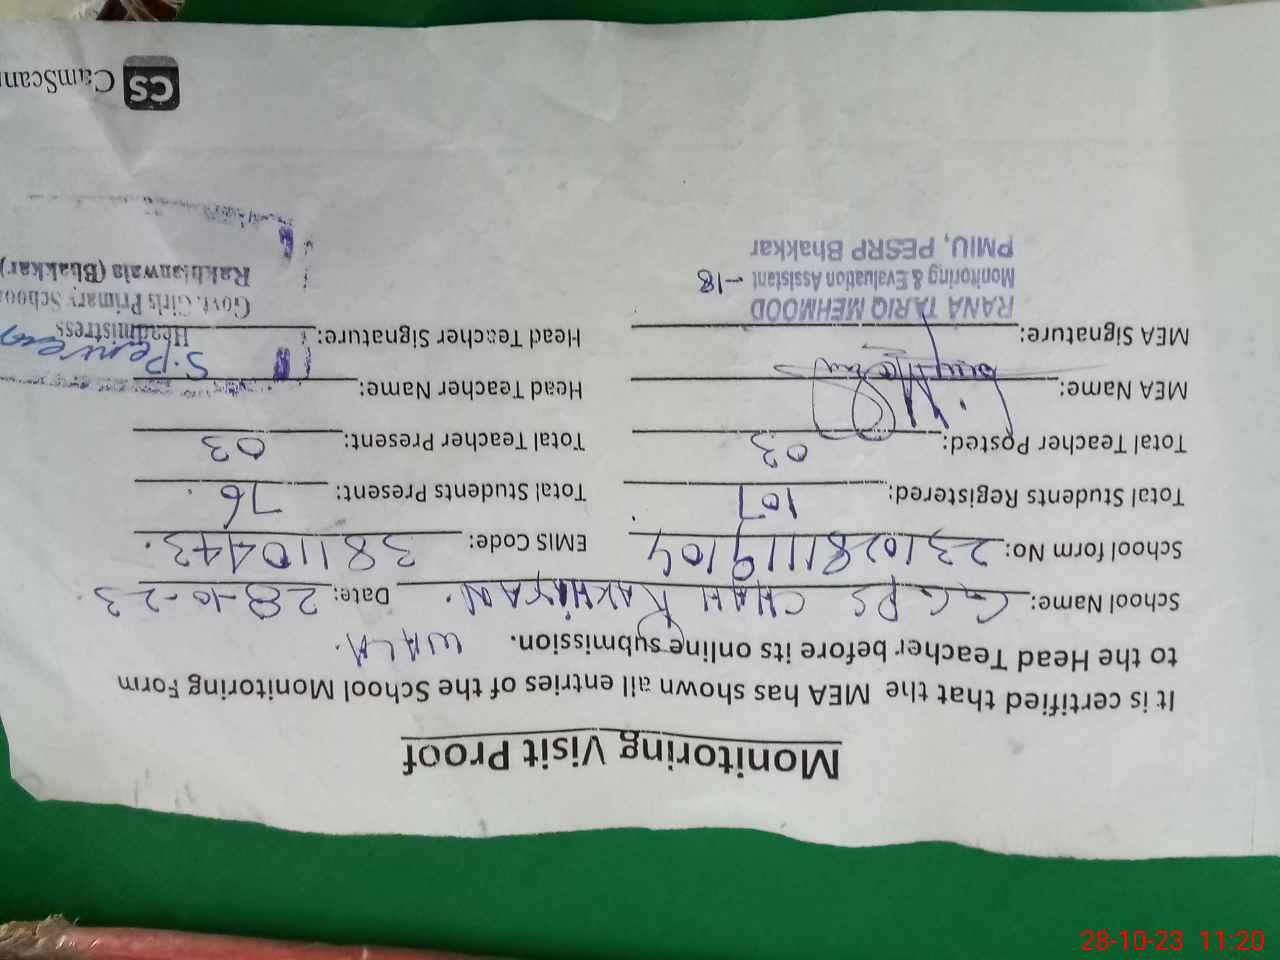 Monitoring Visit Proof
It is certified that the MEA has shown all entries of the School Monitoring Form
to the Head Teacher before its online submission. WALA.
School Name: GGPS CHAH RAKHIYAN. Date: 28-10-23
School form No: 2310281119104 EMIS Code: 38110443.
Total Students Registered: 107 Total Students Present: 76
Total Teacher Posted: 03 Total Teacher Present: 03
MEA Name: Head Teacher Name:
MEA Signature: Head Teacher Signature:
S.Perveen
Headmistress
RANA TARIQ MEHMOOD Govt. Girls Primary School
Monitoring & Evaluation Assistant -18 Rakhianwala (Bhakkar)
PMIU, PESRP Bhakkar
CS CamScann
28-10-23 11:20